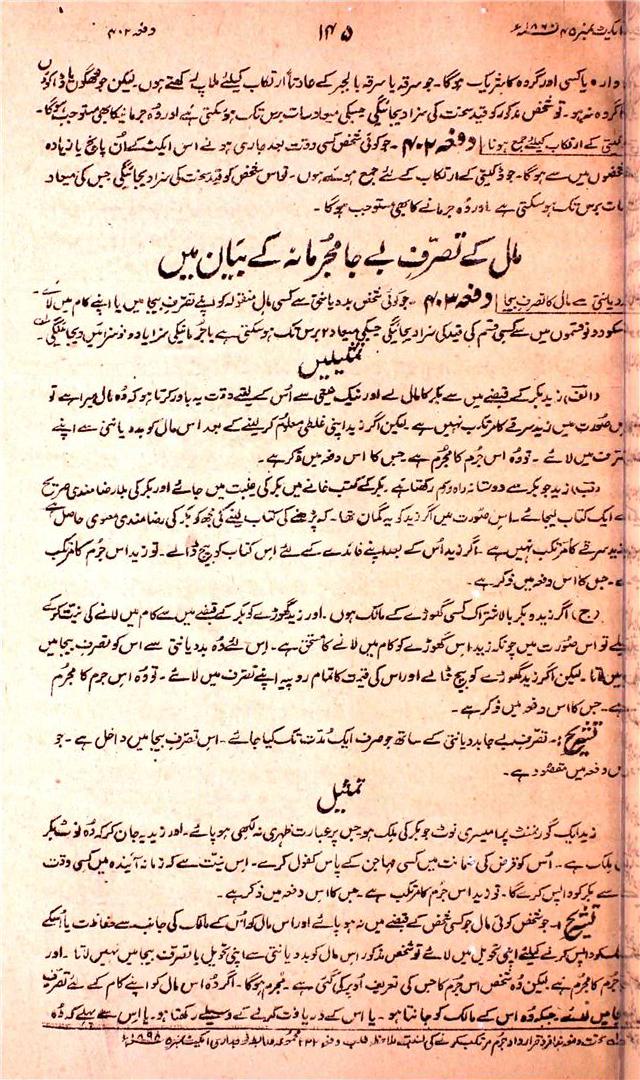 ایکٹ نمبر ۴۵ ۱۸۶۰ء ۱۴۵ دفعہ ۴۰۲
وارہ یا کسی اور گروہ کا شریک ہوگا۔ جو سرقہ یا سرقہ بالجبر کے عادتاً ارتکاب کیلئے ملاپ رکھتے ہوں۔ لیکن جو ٹھگوں یا ڈاکوؤں
کا گروہ نہ ہو۔ تو شخص مذکور کو قید سخت کی سزا دیجائیگی جسکی میعاد سات برس تک ہو سکتی ہے اور وہ جرمانہ کا بھی مستوجب ہوگا۔
ڈکیتی کے ارتکاب کیلئے جمع ہونا دفعہ ۴۰۲۔ جو کوئی شخص کسی وقت بعد جاری ہونے اس ایکٹ کے اُن پانچ یا زیادہ
شخصوں میں سے ہوگا۔ جو ڈکیتی کے ارتکاب کے لئے جمع ہوئے ہوں۔ تو اس شخص کو قید سخت کی سزا دیجائیگی جس کی میعاد
سات برس تک ہو سکتی ہے اور وہ جرمانے کا بھی مستوجب ہوگا۔
مال کے تصرّفِ بے جا مجرمانہ کے بیان میں
بددیانتی سے مال کا تصرف بیجا دفعہ ۴۰۳۔ جو کوئی شخص بددیانتی سے کسی مال منقولہ کو اپنے تصرف بیجا میں یا اپنے کام میں لائے۔
اسکو دونوں قسموں میں سے کسی قسم کی قید کی سزا دیجائیگی جسکی میعاد ۲ برس تک ہو سکتی ہے یا جرمانے کی سزا یا دونوں سزائیں دیجائیںگی۔
تمثیلیں
(الف) زید بکر کے قبضے میں سے بکر کا مال لے اور نیک نیتی سے اُس کے لیتے وقت یہ باور کرتا ہو کہ وہ مال میرا ہے تو
اس صورت میں زید سرقے کا مرتکب نہیں ہے لیکن اگر زید اپنی غلطی معلوم کر لینے کے بعد اس مال کو بددیانتی سے اپنے
تصرف میں لائے۔ تو وہ اس جرم کا مجرم ہے جس کا اس دفعہ میں ذکر ہے۔
(ب) زید جو بکر سے دوستانہ راہ و رسم رکھتا ہے۔ بکر کے کتب خانے میں بکر کی غیبت میں جائے اور بکر کی بلا رضامندی صریح
کے ایک کتاب لیجائے۔ اس صورت میں اگر زید کو یہ گمان تھا۔ کہ پڑھنے کی کتاب لینے کی مجھ کو بکر کی رضامندی معنوی حاصل ہے
زید سرقے کا مرتکب نہیں ہے۔ اگر زید اُس کے بعد اپنے فائدے کے لئے اس کتاب کو بیچ ڈالے۔ تو زید اس جرم کا مرتکب
ہے۔ جس کا اس دفعہ میں ذکر ہے۔
(ج) اگر زید و بکر بالاشتراک کسی گھوڑے کے مالک ہوں۔ اور زید گھوڑے کو بکر کے قبضے میں سے کام میں لانے کی نیت کر کے
لیلے تو اس صورت میں چونکہ زید اس گھوڑے کو کام میں لانے کا مستحق ہے۔ اس لئے وہ بددیانتی سے اس کو تصرف بیجا میں
نہیں لاتا۔ لیکن اگر زید گھوڑے کو بیچ ڈالے اور اس کی قیمت کا تمام روپیہ اپنے تصرف میں لائے۔ تو وہ اس جرم کا مجرم
ہے۔ جس کا اس دفعہ میں ذکر ہے۔
تشریح ۱۔ تصرف بے جا بددیانتی کے ساتھ جو صرف ایک مُدت تک کیا جائے۔ اس تصرف بیجا میں داخل ہے۔ جو
اس دفعہ میں مقصود ہے۔
تمثیل
زید ایک گورنمنٹ پرامیسری نوٹ جو بکر کی ملک ہو جس پر عبارت ظہری نہ لکھی ہو پائے۔ اور زید یہ جان کر کہ وہ نوٹ بکر
کی ملک ہے۔ اُس کو قرض کی ضمانت میں کسی مہاجن کے پاس مکفول کرے۔ اس نیت سے کہ زمانہ آیندہ میں کسی وقت
اسے بکر کو واپس کرے گا۔ تو زید اس جرم کا مرتکب ہے۔ جس کا اس دفعہ میں ذکر ہے۔
تشریح ۲۔ جو شخص کوئی مال جو کسی شخص کے قبضے میں نہ ہو پائے اور اس مال کو اُس کے مالک کی جانب سے حفاظت یا اسکے
اسکو واپس کرنے کیلئے اپنی تحویل میں لائے تو شخص مذکور اس مال کو بددیانتی سے اپنی تحویل یا تصرف بیجا میں نہیں لاتا۔ اور
جرم کا مجرم ہے لیکن وہ شخص اس جرم کا جس کی تعریف اُوپر کی گئی ہے۔ مجرم ہوگا۔ اگر وہ اس مال کو اپنے کام کے لئے تصرف
بیجا میں لائے۔ جبکہ وہ اس کے مالک کو جانتا ہو۔ یا اس کے دریافت کرنے کے وسیلے رکھتا ہو۔ یا اس سے پہلے کہ وہ